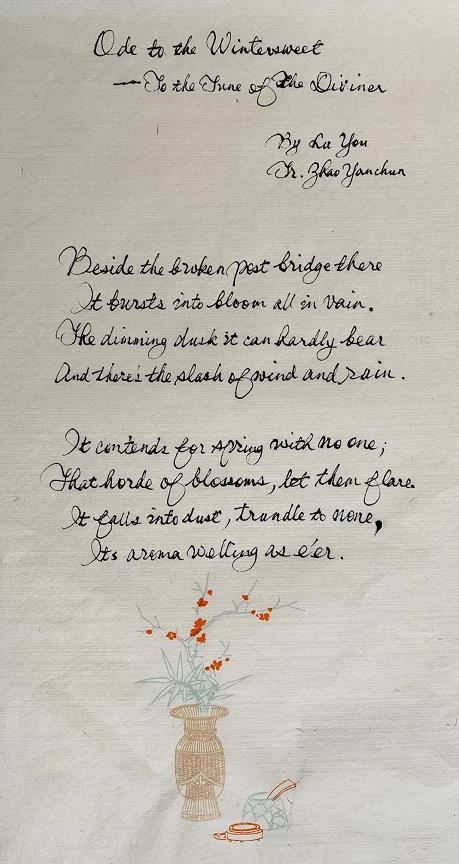 Ode to the Wintersweet
—To the Tune of The Diviner
By Lu You
Tr. Zhao Yanchun
Beside the broken post bridge there
It bursts into bloom all in vain.
The dimming dusk it can hardly bear
And there's the slash of wind and rain.
It contends for spring with no one;
That horde of blossoms, let them flare.
It falls into dust, trundle to none,
Its aroma welling as e'er.